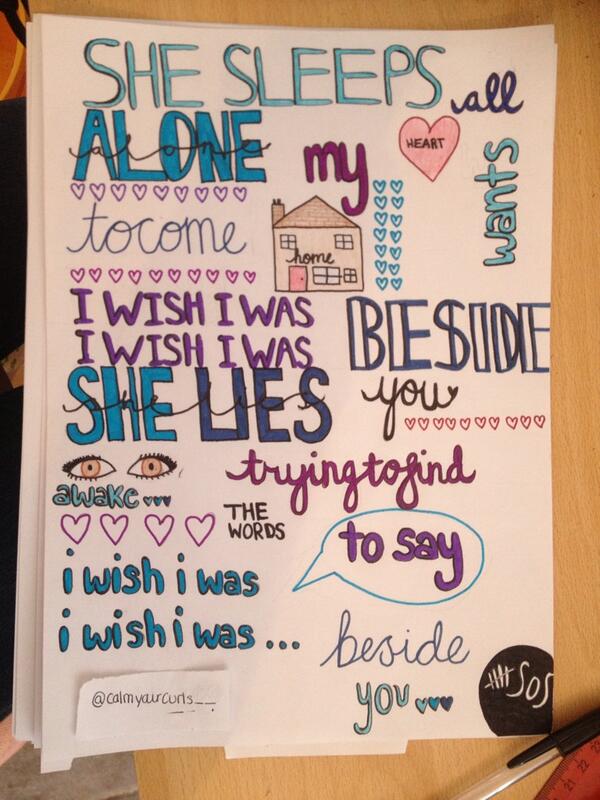 SHE SLEEPS all
ALONE
alone
my
HEART
wants
to come
home
I WISH I WAS
I WISH I WAS
BESIDE
SHE LIES
she lies
you
awake
trying to find
THE
WORDS
to say
i wish i was
i wish i was ...
beside
you
@calmyourcurls__
SOS
21 22 23